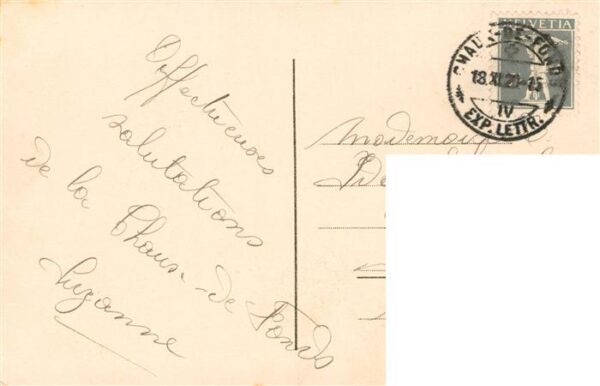 Affectueuses
salutations
de la Chaux-de-Fonds
Suzanne
HELVETIA
CHAUX-DE-FONDS
18.XI.21-15
IV
EXP. LETTR.
Mademois